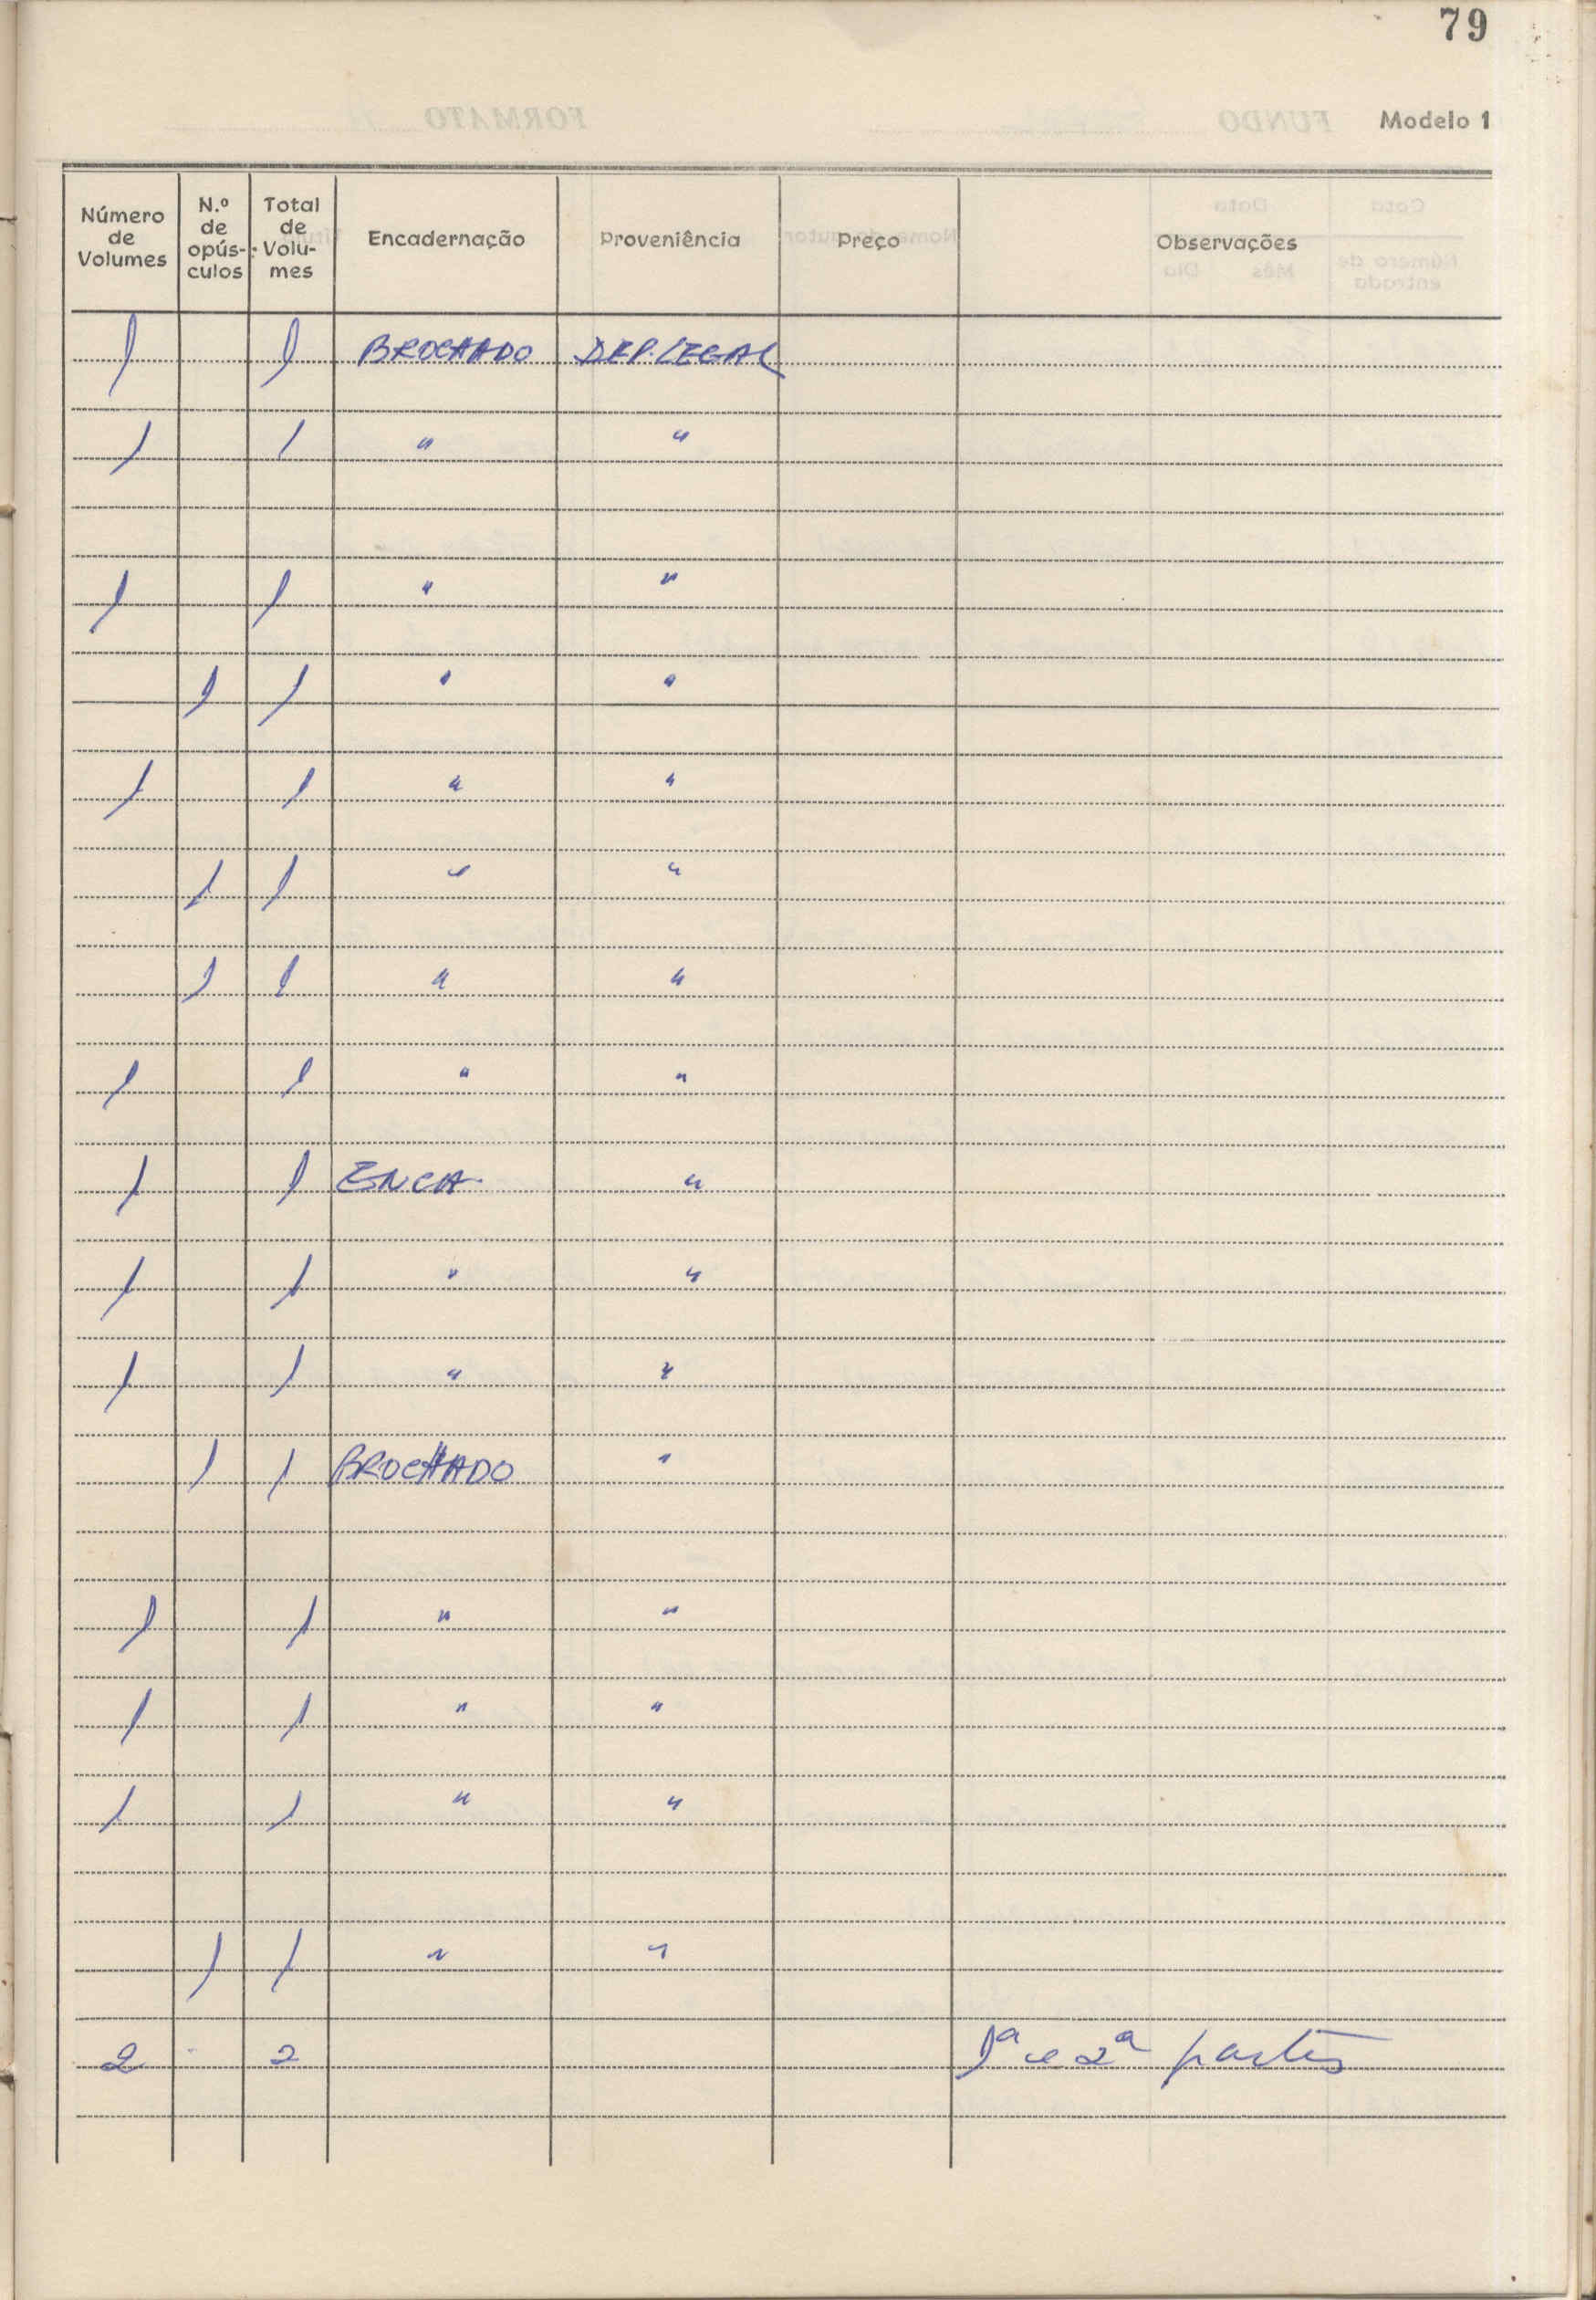 79
Modelo 1
Número de Volumes | N.º de opús-culos | Total de Volu-mes | Encadernação | Proveniência | Preço | Observações
1 1 BROCHADO DEP. LEGAL
1 1 " "
1 1 " "
1 1 " "
1 1 " "
1 1 " "
1 1 " "
1 1 " "
1 1 ENCA. "
1 1 " "
1 1 " "
1 1 BROCHADO "
1 1 " "
1 1 " "
1 1 " "
1 1 " "
2 2 1ª e 2ª partes